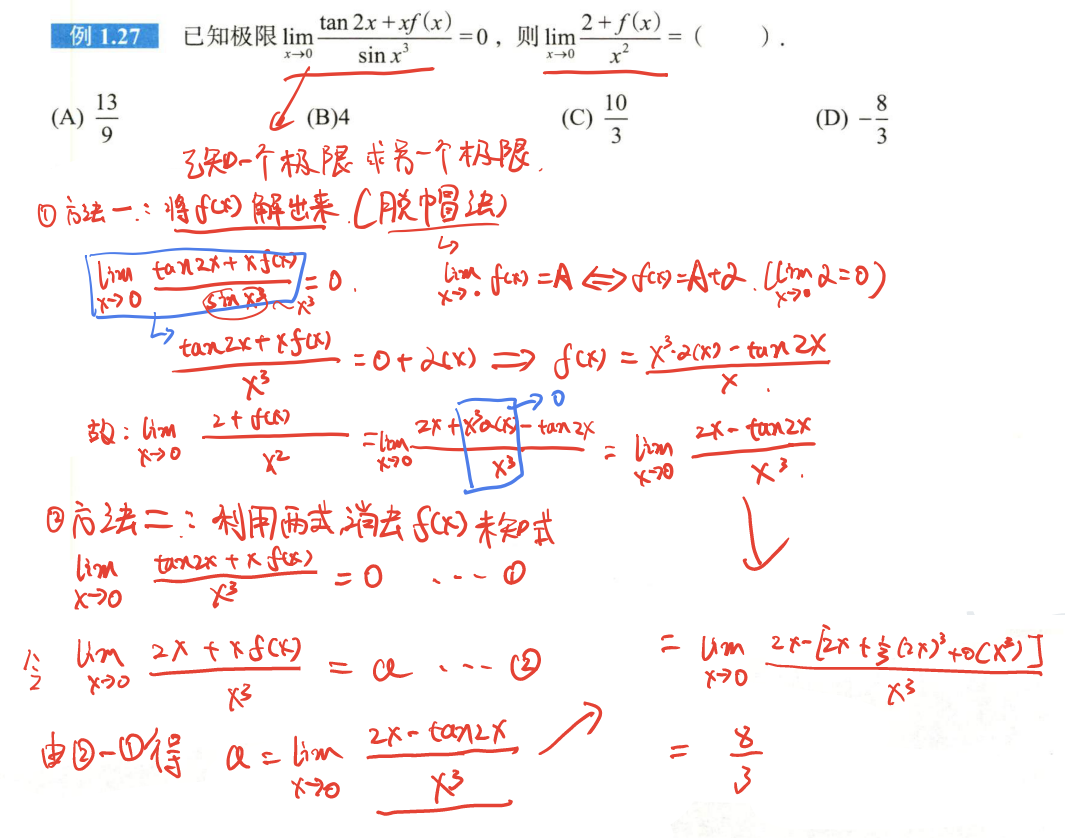 例 1.27 已知极限 lim_{x→0} (tan 2x + xf(x))/(sin x³) = 0，则 lim_{x→0} (2 + f(x))/x² = (    ).
(A) 13/9 (B)4 (C) 10/3 (D) -8/3
已知一个极限求另一个极限.
①方法一：将f(x)解出来.(脱帽法)
lim_{x→0} (tan2x + xf(x))/(sin x³) = 0. ~x³ lim_{x→•} f(x) = A ⇔ f(x) = A+α. (lim_{x→•} α = 0)
(tan2x + xf(x))/x³ = 0 + α(x) ⇒ f(x) = (x³·α(x) - tan2x)/x.
→0
故: lim_{x→0} (2 + f(x))/x² = lim_{x→0} (2x + x³α(x) - tan2x)/x³ = lim_{x→0} (2x - tan2x)/x³.
②方法二：利用两式消去f(x)未知式
lim_{x→0} (tan2x + xf(x))/x³ = 0 ···①
令 lim_{x→0} (2x + xf(x))/x³ = a ···②
= lim_{x→0} (2x - [2x + 1/3(2x)³ + o(x³)])/x³
由②-①得 a = lim_{x→0} (2x - tan2x)/x³
= 8/3